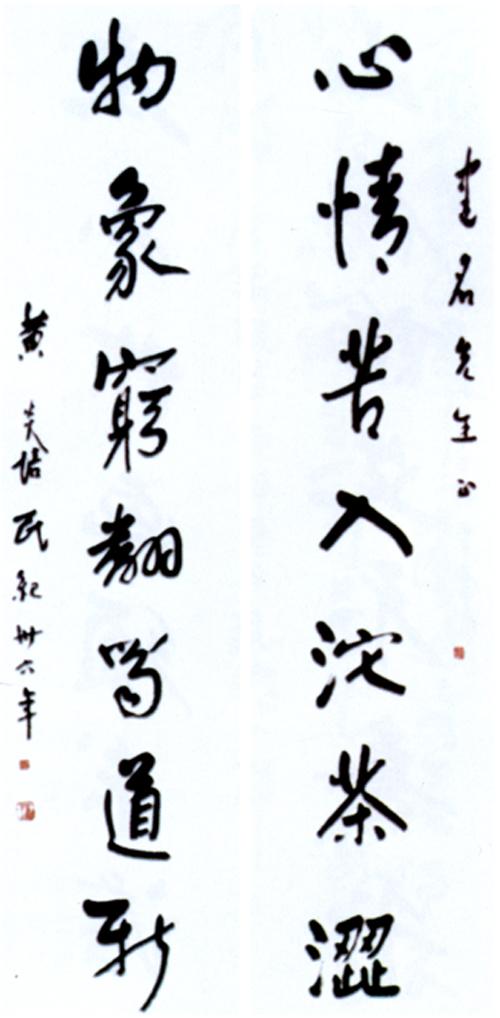 名先生正
心情苦入沱茶澀
物象窮翻蜀道新
黄炎培民紀卅六年